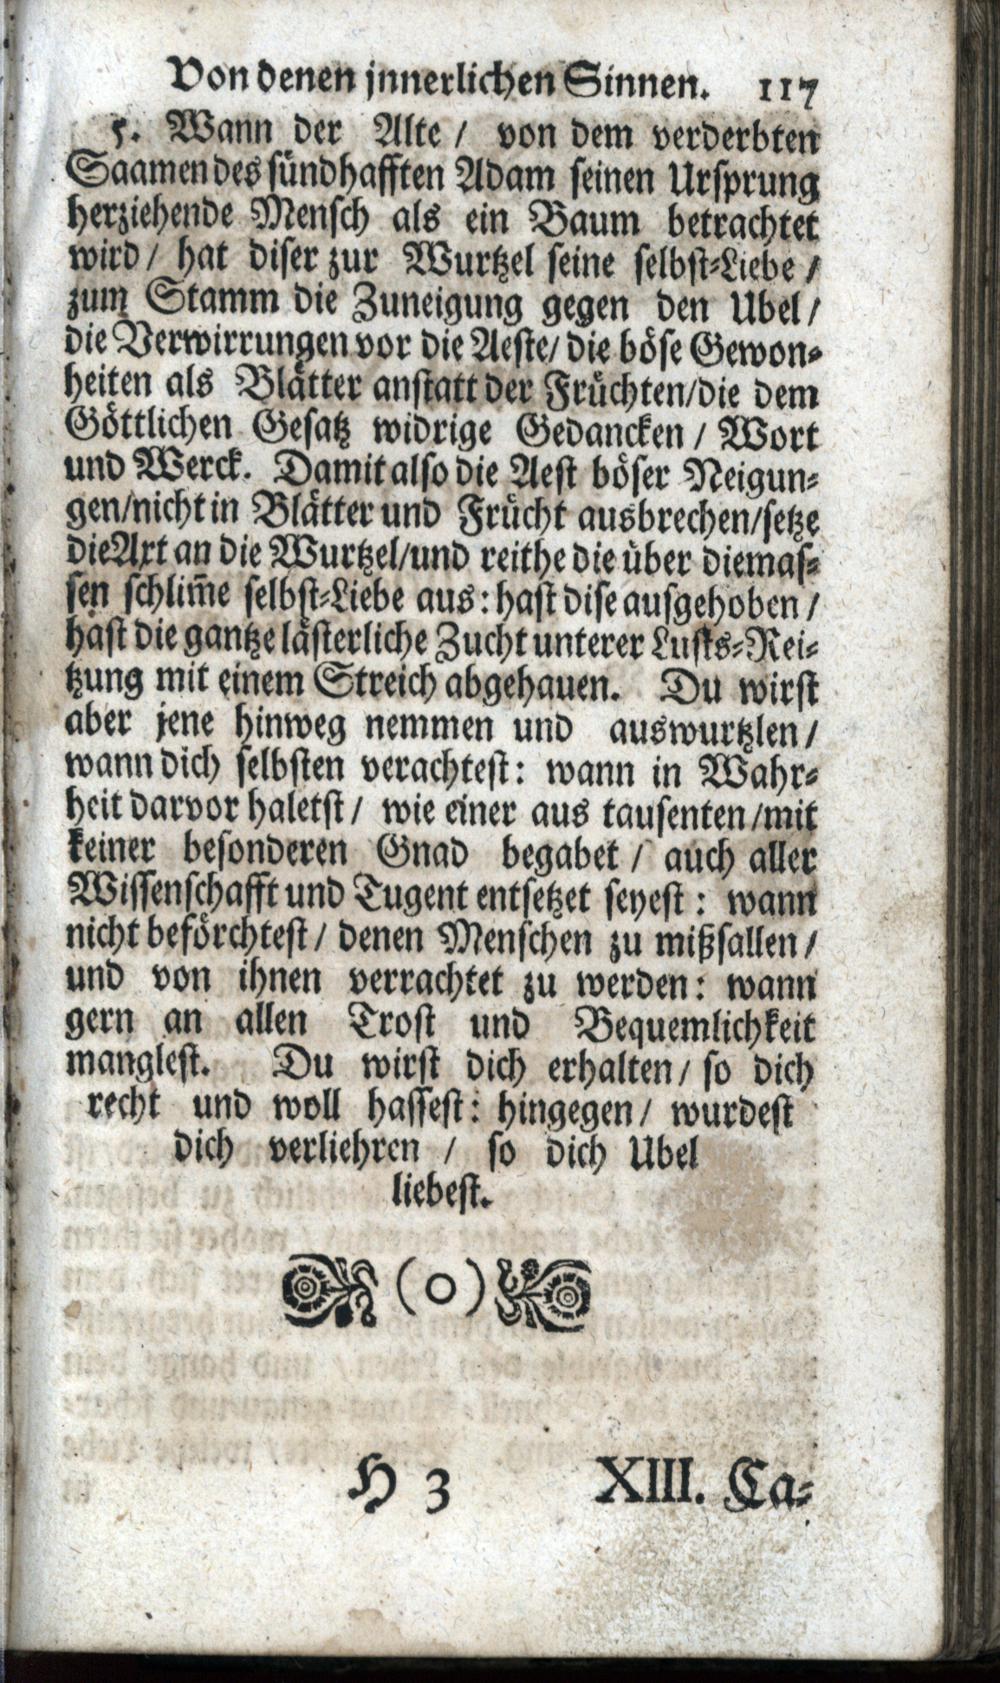 Von denen jnnerlichen Sinnen. 117
5. Wann der Alte / von dem verderbten
Saamen des sündhafften Adam seinen Ursprung
herziehende Mensch als ein Baum betrachtet
wird / hat diser zur Wurtzel seine selbst-Liebe /
zum Stamm die Zuneigung gegen den Ubel /
die Verwirrungen vor die Aeste / die böse Gewon-
heiten als Blätter anstatt der Früchten / die dem
Göttlichen Gesatz widrige Gedancken / Wort
und Werck. Damit also die Aest böser Neigun-
gen / nicht in Blätter und Frücht ausbrechen / setze
die Axt an die Wurtzel / und reithe die über diemas-
sen schlim̃e selbst-Liebe aus: hast dise aufgehoben /
hast die gantze lästerliche Zucht unterer Lusts-Rei-
tzung mit einem Streich abgehauen. Du wirst
aber jene hinweg nemmen und auswurtzlen /
wann dich selbsten verachtest: wann in Wahr-
heit darvor haletst / wie einer aus tausenten / mit
keiner besonderen Gnad begabet / auch aller
Wissenschafft und Tugent entsetzet seyest: wann
nicht beförchtest / denen Menschen zu mißfallen /
und von ihnen verrachtet zu werden: wann
gern an allen Trost und Bequemlichkeit
manglest. Du wirst dich erhalten / so dich
recht und woll hassest: hingegen / wurdest
dich verliehren / so dich Ubel
liebest.
(o)
H 3 XIII. Ca-